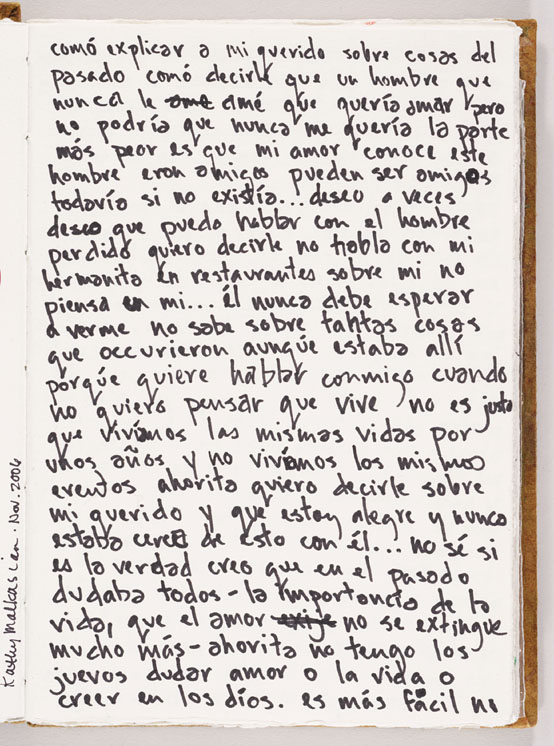 comó explicar a mi querido sobre cosas del
pasado comó decirle que un hombre que
nunca le ame amé que quería amar pero
no podría que nunca me quería la parte
más peor es que mi amor conoce este
hombre eron amigos pueden ser amigos
todavía si no existía... deseo a veces
deseo que puedo hablar con el hombre
perdido quiero decirle no habla con mi
hermanita en restaurantes sobre mi no
piensa en mi... él nunca debe esperar
a verme no sabe sobre tantas cosas
que occurieron aunqúe estaba allí
porqúe quiere hablar conmigo cuando
no quiero pensar que vive no es justo
que vivíamos las mismas vidas por
unos años y no vivíamos los mismos
eventos ahorita quiero decirle sobre
mi querido y que estoy alegre y nunca
estaba cerca de esto con él... no sé si
es la verdad creo que en el pasado
dudaba todos - la importancia de la
vida, que el amor exije no se extingue
mucho más - ahorita no tengo los
juevos dudar amor o la vida o
creer en los díos. es más fácil no
Kathy Malkasian. Nov. 2006